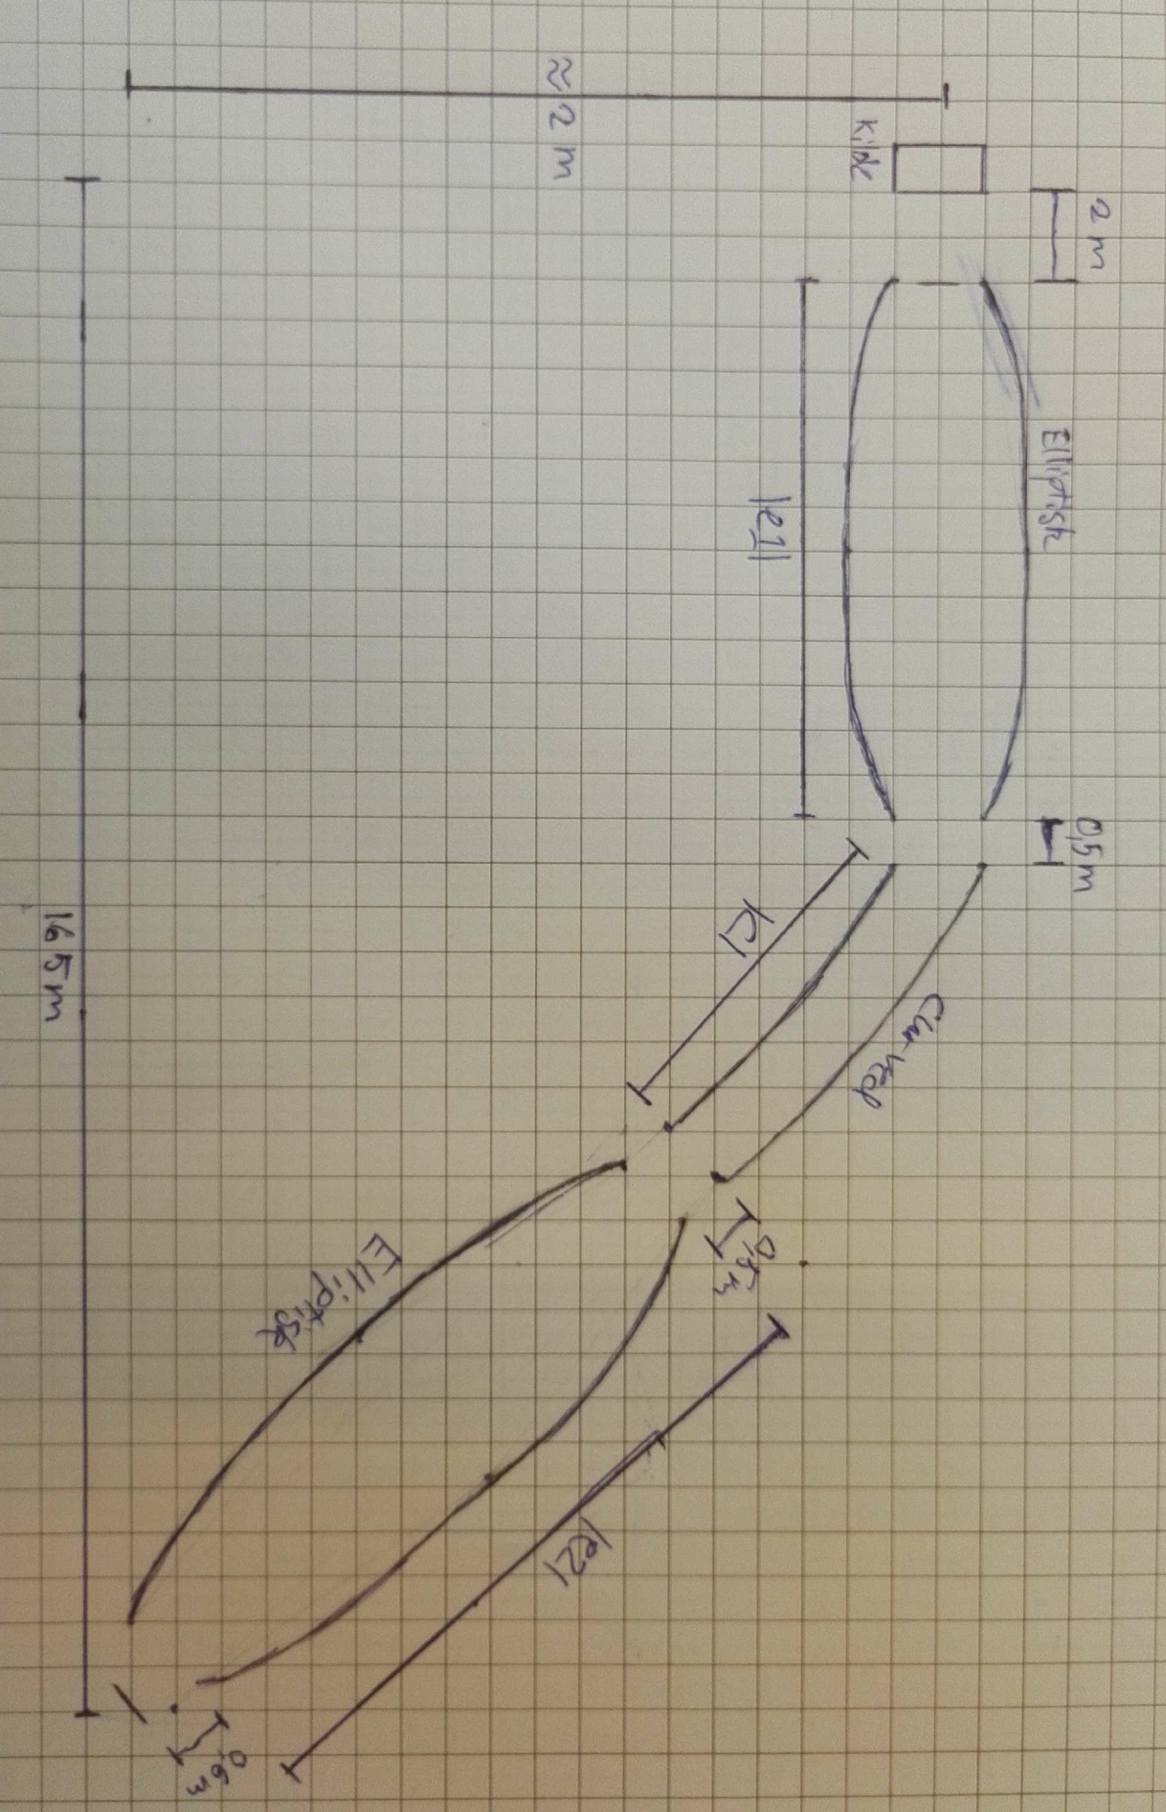 2 m
0,5m
Elliptisk
Kilde
Curved
|e1|
|C|
0,5m
|e2|
≈ 2 m
Elliptisk
0,6m
165m